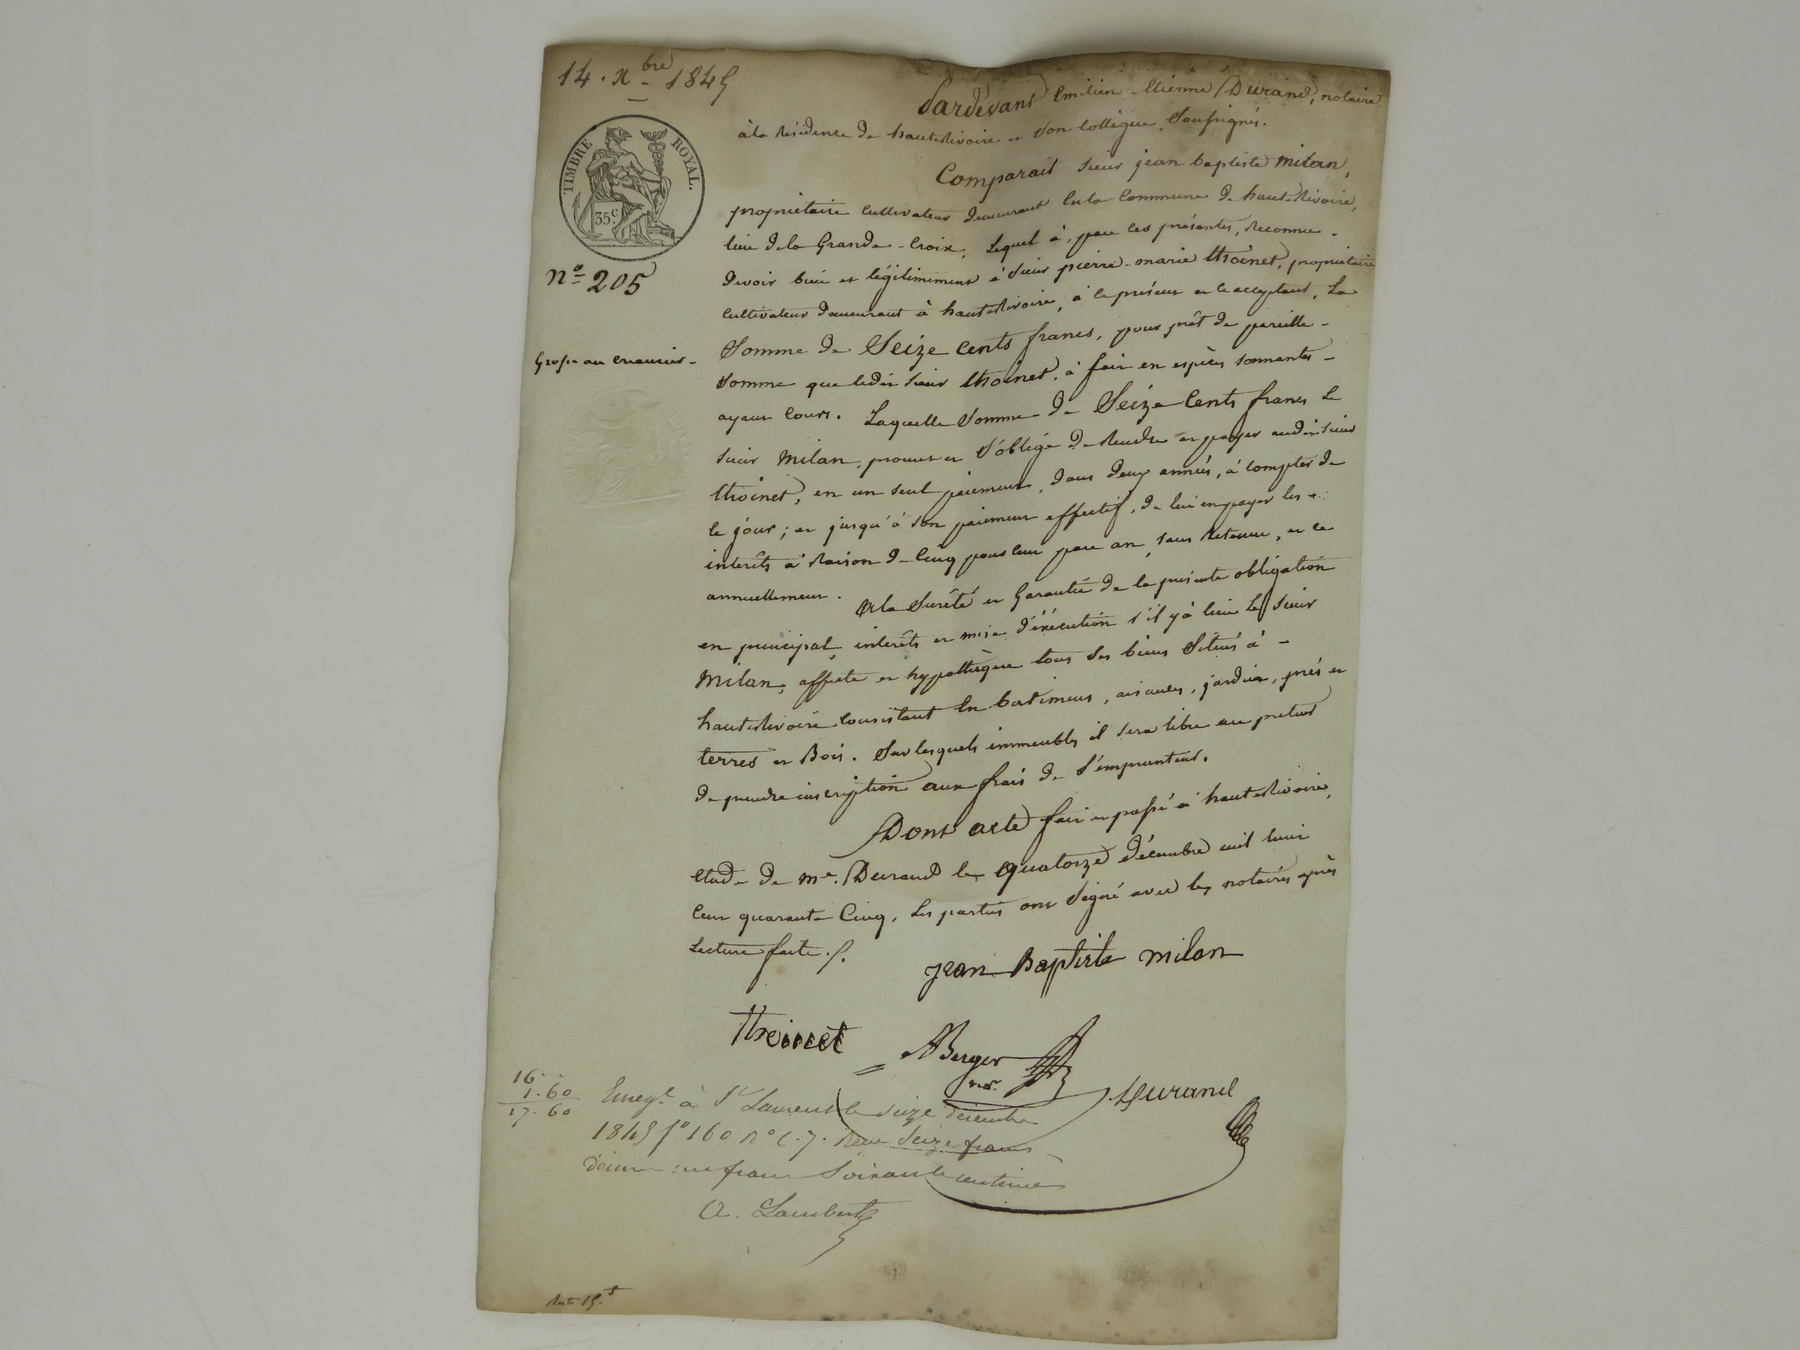 14. Xbre 1845
Pardevant Emilien-Etienne Durand, notaire
à la résidence de haute Rivoire et son collègue, soussignés.
TIMBRE ROYAL.
35c
Comparait sieur jean baptiste milan,
propriétaire cultivateur demeurant en la Commune de haute Rivoire,
lieu de la Grande-Croix, Lequel à, par ces présentes, reconnu
devoir bien et légitimement à Sieur pierre-marie thoinet, propriétaire
No 205
cultivateur demeurant à haute Rivoire, à ce présent et ce acceptant, La
Somme de Seize Cents francs, pour prêt de pareille
Grosse au créancier
somme que ledit sieur thoinet, à fait en espèces sonnantes
ayant cours. Laquelle Somme de Seize Cents francs Le
sieur milan, promet et s'oblige de rendre et payer audit sieur
thoinet, en un seul paiement, dans deux années, à compter de
ce jour; et jusqu'à son paiement effectif, de lui en payer les
intérêts à raison de Cinq pour cent par an, sans retenue, et ce
annuellement.
A la Sûreté et Garantie de la présente obligation
en principal, intérêts et mise d'éxécution s'il y à lieu Le sieur
milan, affecte et hypothèque tous ses biens Situés à
haute Rivoire Consistant En batimens, aisances, jardin, prés et
terres et Bois. Sur lesquels immeubles il sera libre au prêteur
de prendre inscription aux frais de l'emprunteur.
Dont acte fait et passé à haute Rivoire,
étude de me. Durand le quatorze décembre mil huit
Cent quarante Cinq, Les parties ont Signé avec les notaires après
Lecture faite./.
jean Baptiste milan
thoinet
ABerger
not.
Durand
16. "
1. 60
17. 60
Enregt. à St Laurent le seize décembre
1845 fo 160 Ro C. 7. Reçu Seize francs
décime un franc Soixante centimes
A. Lambert